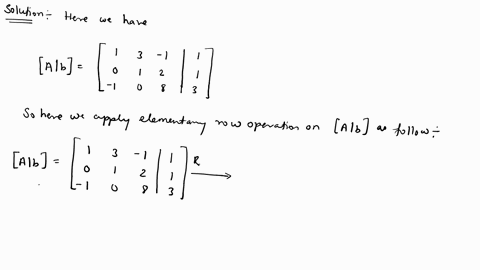 Solution:- Here we have
[A|b] = [ 1 3 -1 | 1
0 1 2 | 1
-1 0 8 | 3 ]
So here we apply elementary row operation on [A|b] as follow:-
[A|b] = [ 1 3 -1 | 1 R →
0 1 2 | 1
-1 0 8 | 3 ]